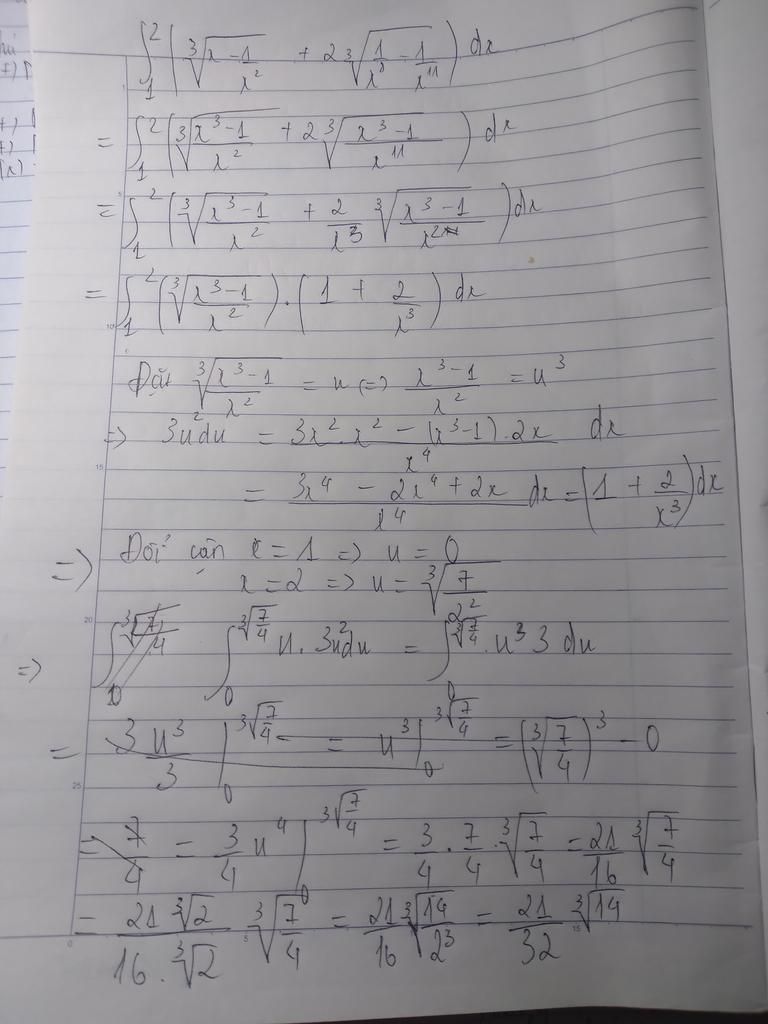 ∫₁² (∛(x − 1/x²) + 2∛(1/x⁸ − 1/x¹¹)) dx
= ∫₁² (∛((x³−1)/x²) + 2∛((x³−1)/x¹¹)) dx
= ∫₁² (∛((x³−1)/x²) + 2/x³ ∛((x³−1)/x²)) dx
= ∫₁² (∛((x³−1)/x²)) · (1 + 2/x³) dx
Đặt ∛((x³−1)/x²) = u (=) (x³−1)/x² = u³
=> 3u²du = (3x².x² − (x³−1).2x)/x⁴ dx
= (3x⁴ − 2x⁴ + 2x)/x⁴ dx = (1 + 2/x³)dx
=> Đổi cận x = 1 => u = 0
x = 2 => u = ∛(7/2²)
=> ∫₀^∛(7/4) u.3u²du = ∫₀^∛(7/4) .u³ 3 du
= 3u³/3 |₀^∛(7/4) = u³ |₀^∛(7/4) = (∛(7/4))³ − 0
= 7/4 = 3/4 u⁴ |₀^∛(7/4) = 3/4 . 7/4 . ∛(7/4) = 21/16 ∛(7/4)
= (21 ∛2)/(16 . ∛2) ∛(7/4) = 21/16 ∛(14/2³) = 21/32 ∛14